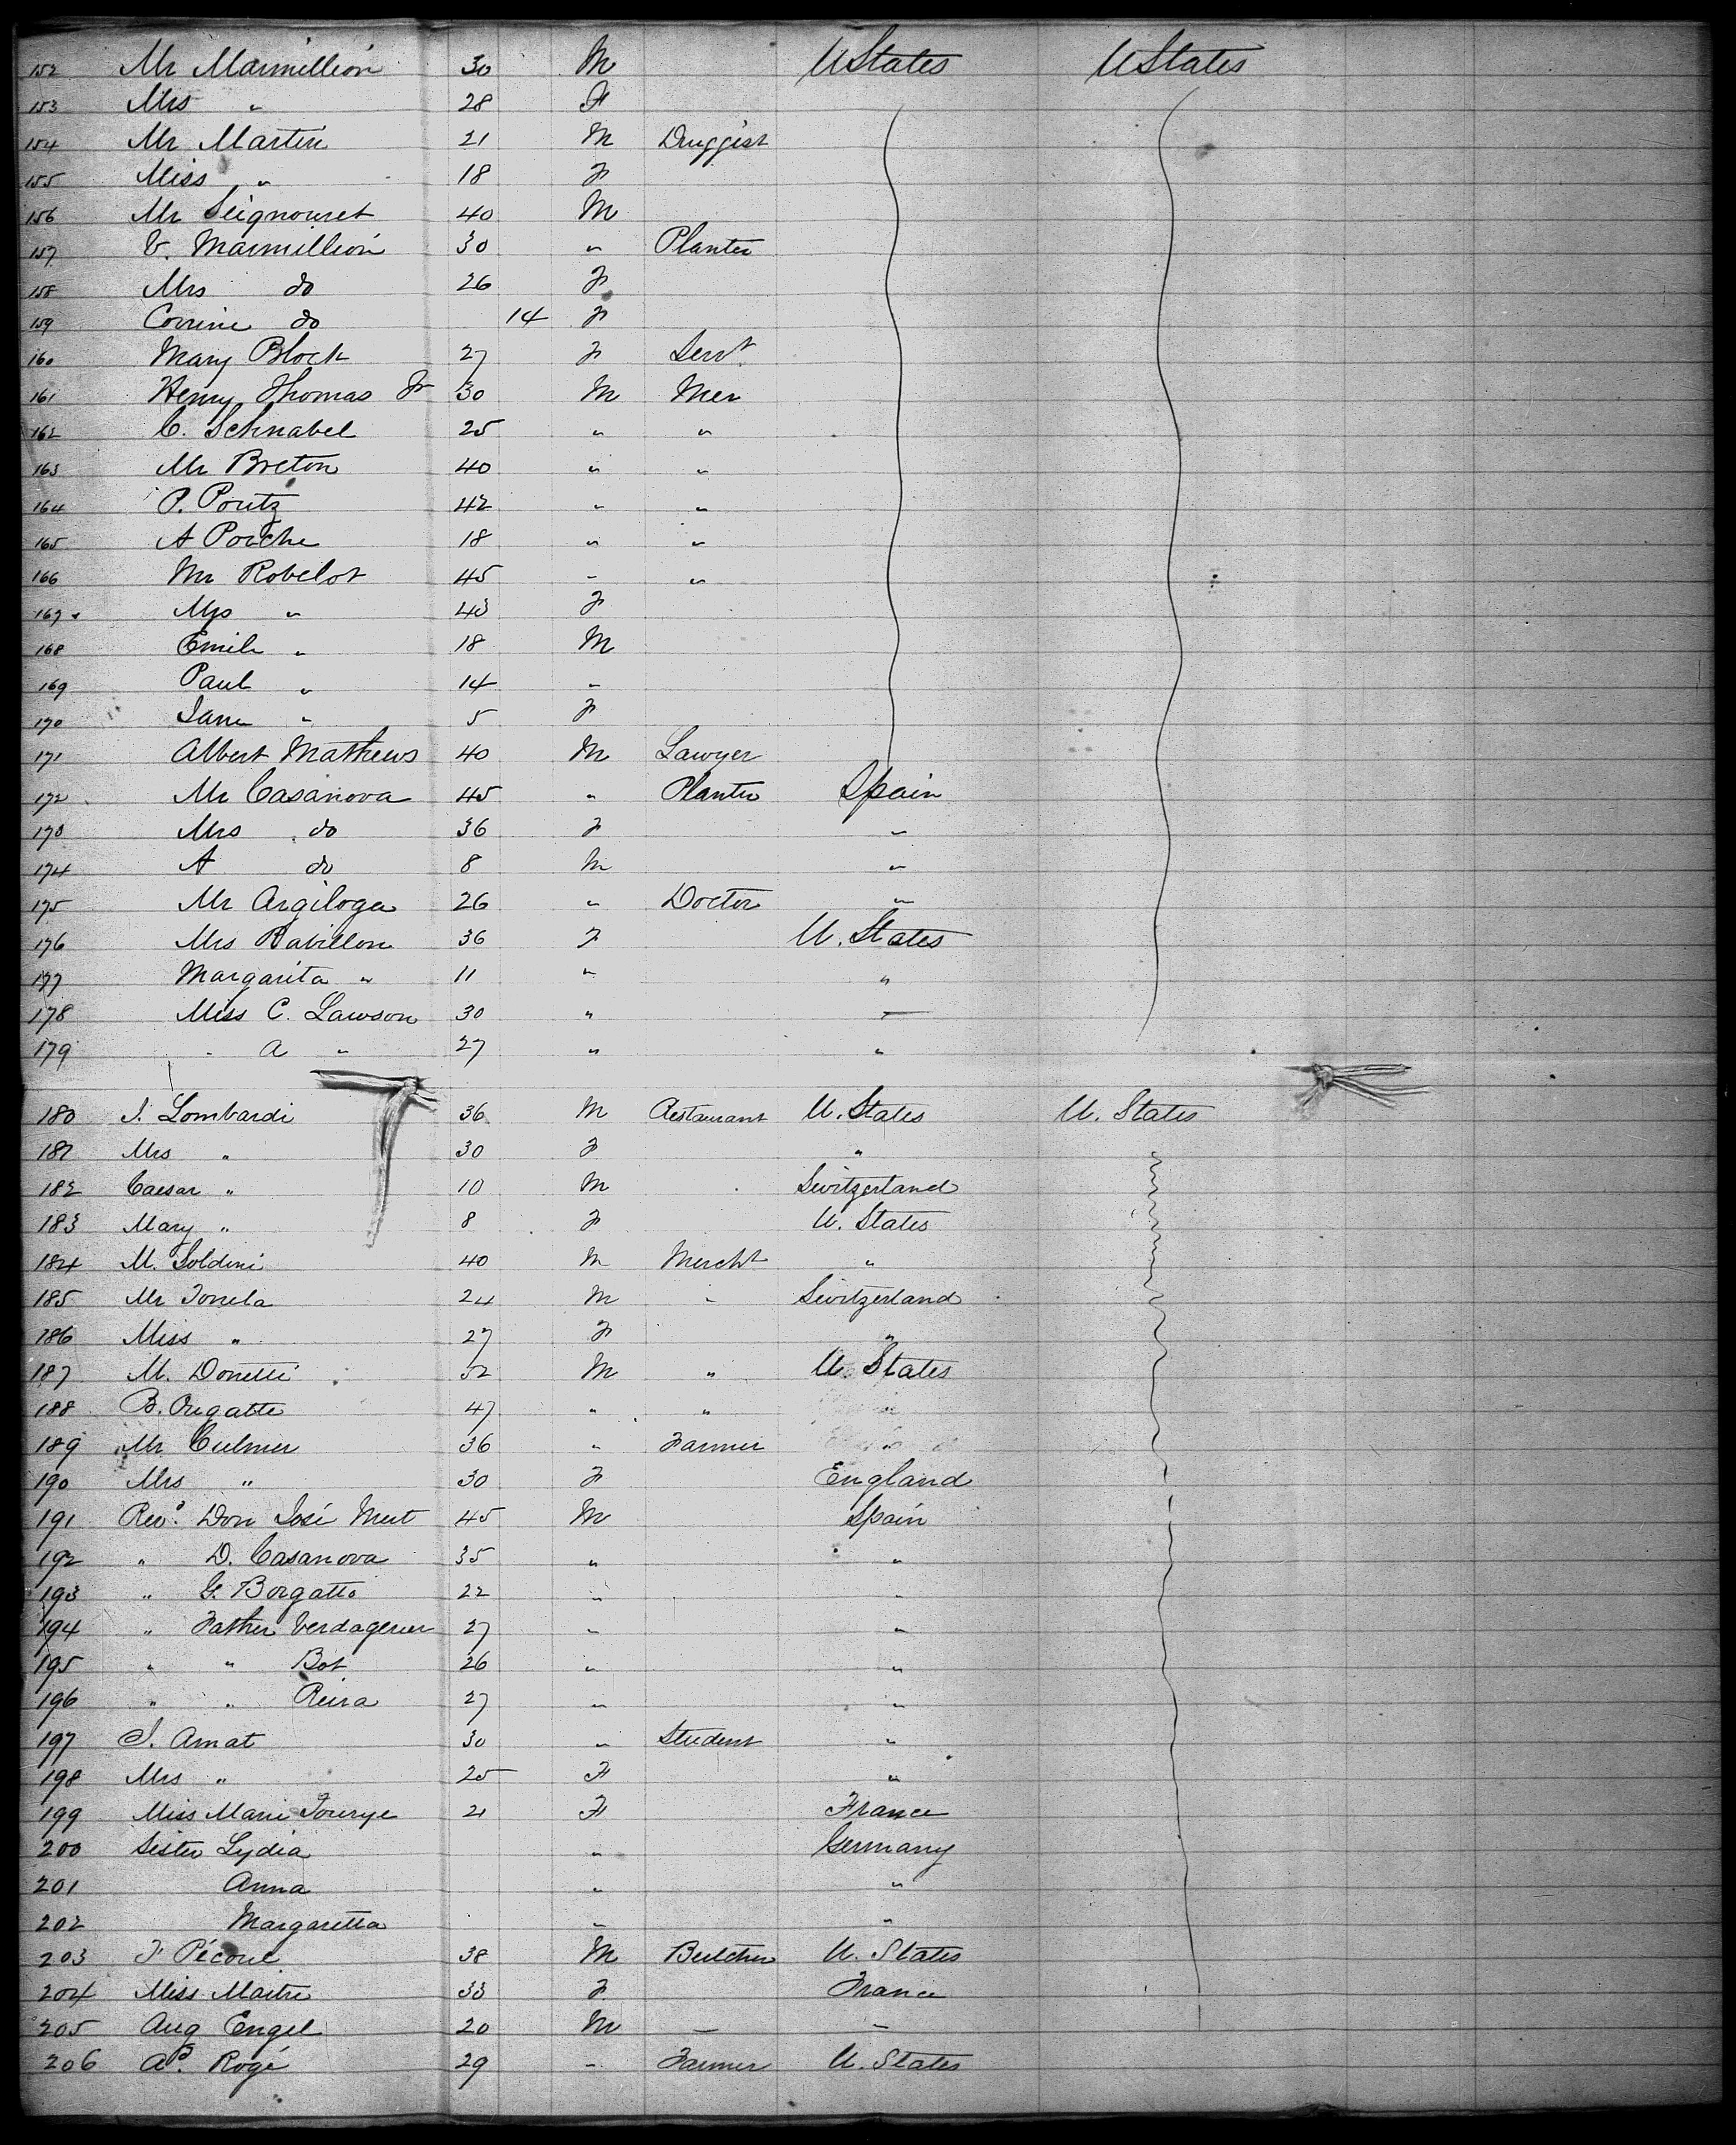 152 Mr Marmillion 30 M UStates UStates
153 Mrs " 28 F
154 Mr Martin 21 M Druggist
155 Miss " 18 F
156 Mr Seignouret 40 M
157 V. Marmillion 30 " Planter
158 Mrs do 26 F
159 Corrine do 14 F
160 Mary Block 27 F Servt
161 Henry Thomas Jr 30 M Mer
162 C. Schnabel 25 " "
163 Mr Breton 40 " "
164 P. Poutz 42 " "
165 A Porche 18 " "
166 Mr Robelot 45 " "
167 Mrs " 43 F
168 Emile " 18 M
169 Paul " 14 "
170 Jane " 5 F
171 Albert Mathews 40 M Lawyer
172 Mr Casanova 45 " Planter Spain
173 Mrs do 36 F "
174 A do 8 M "
175 Mr Argiloga 26 " Doctor "
176 Mrs Rabillon 36 F U. States
177 Margarita " 11 " "
178 Miss C. Lawson 30 " "
179 " A " 27 " "
180 J. Lombardi 36 M Restaurant U. States U. States
181 Mrs " 30 F "
182 Caesar " 10 M Switzerland
183 Mary " 8 F U. States
184 M. Soldini 40 M Mercht "
185 Mr Tonela 24 M " Switzerland
186 Miss " 27 F "
187 M. Donetti 52 M " U. States
188 B. Orgatte 47 " " "
189 Mr Culmer 36 " Farmer "
190 Mrs " 30 F England
191 Revd. Don José Mut 45 M Spain
192 " D. Casanova 35 " "
193 " G. Borgatto 22 " "
194 " Father Verdaguer 27 " "
195 " " Bot 26 " "
196 " " Reira 27 " "
197 J. Amat 30 " Student "
198 Mrs " 25 F "
199 Miss Marie Tourye 21 F France
200 Sister Lydia " Germany
201 Anna " "
202 Margaretta " "
203 F Pécoul 38 M Butcher U. States
204 Miss Maitre 33 F France
205 Aug Engel 20 M — "
206 Ad. Rogé 29 " Farmer U. States